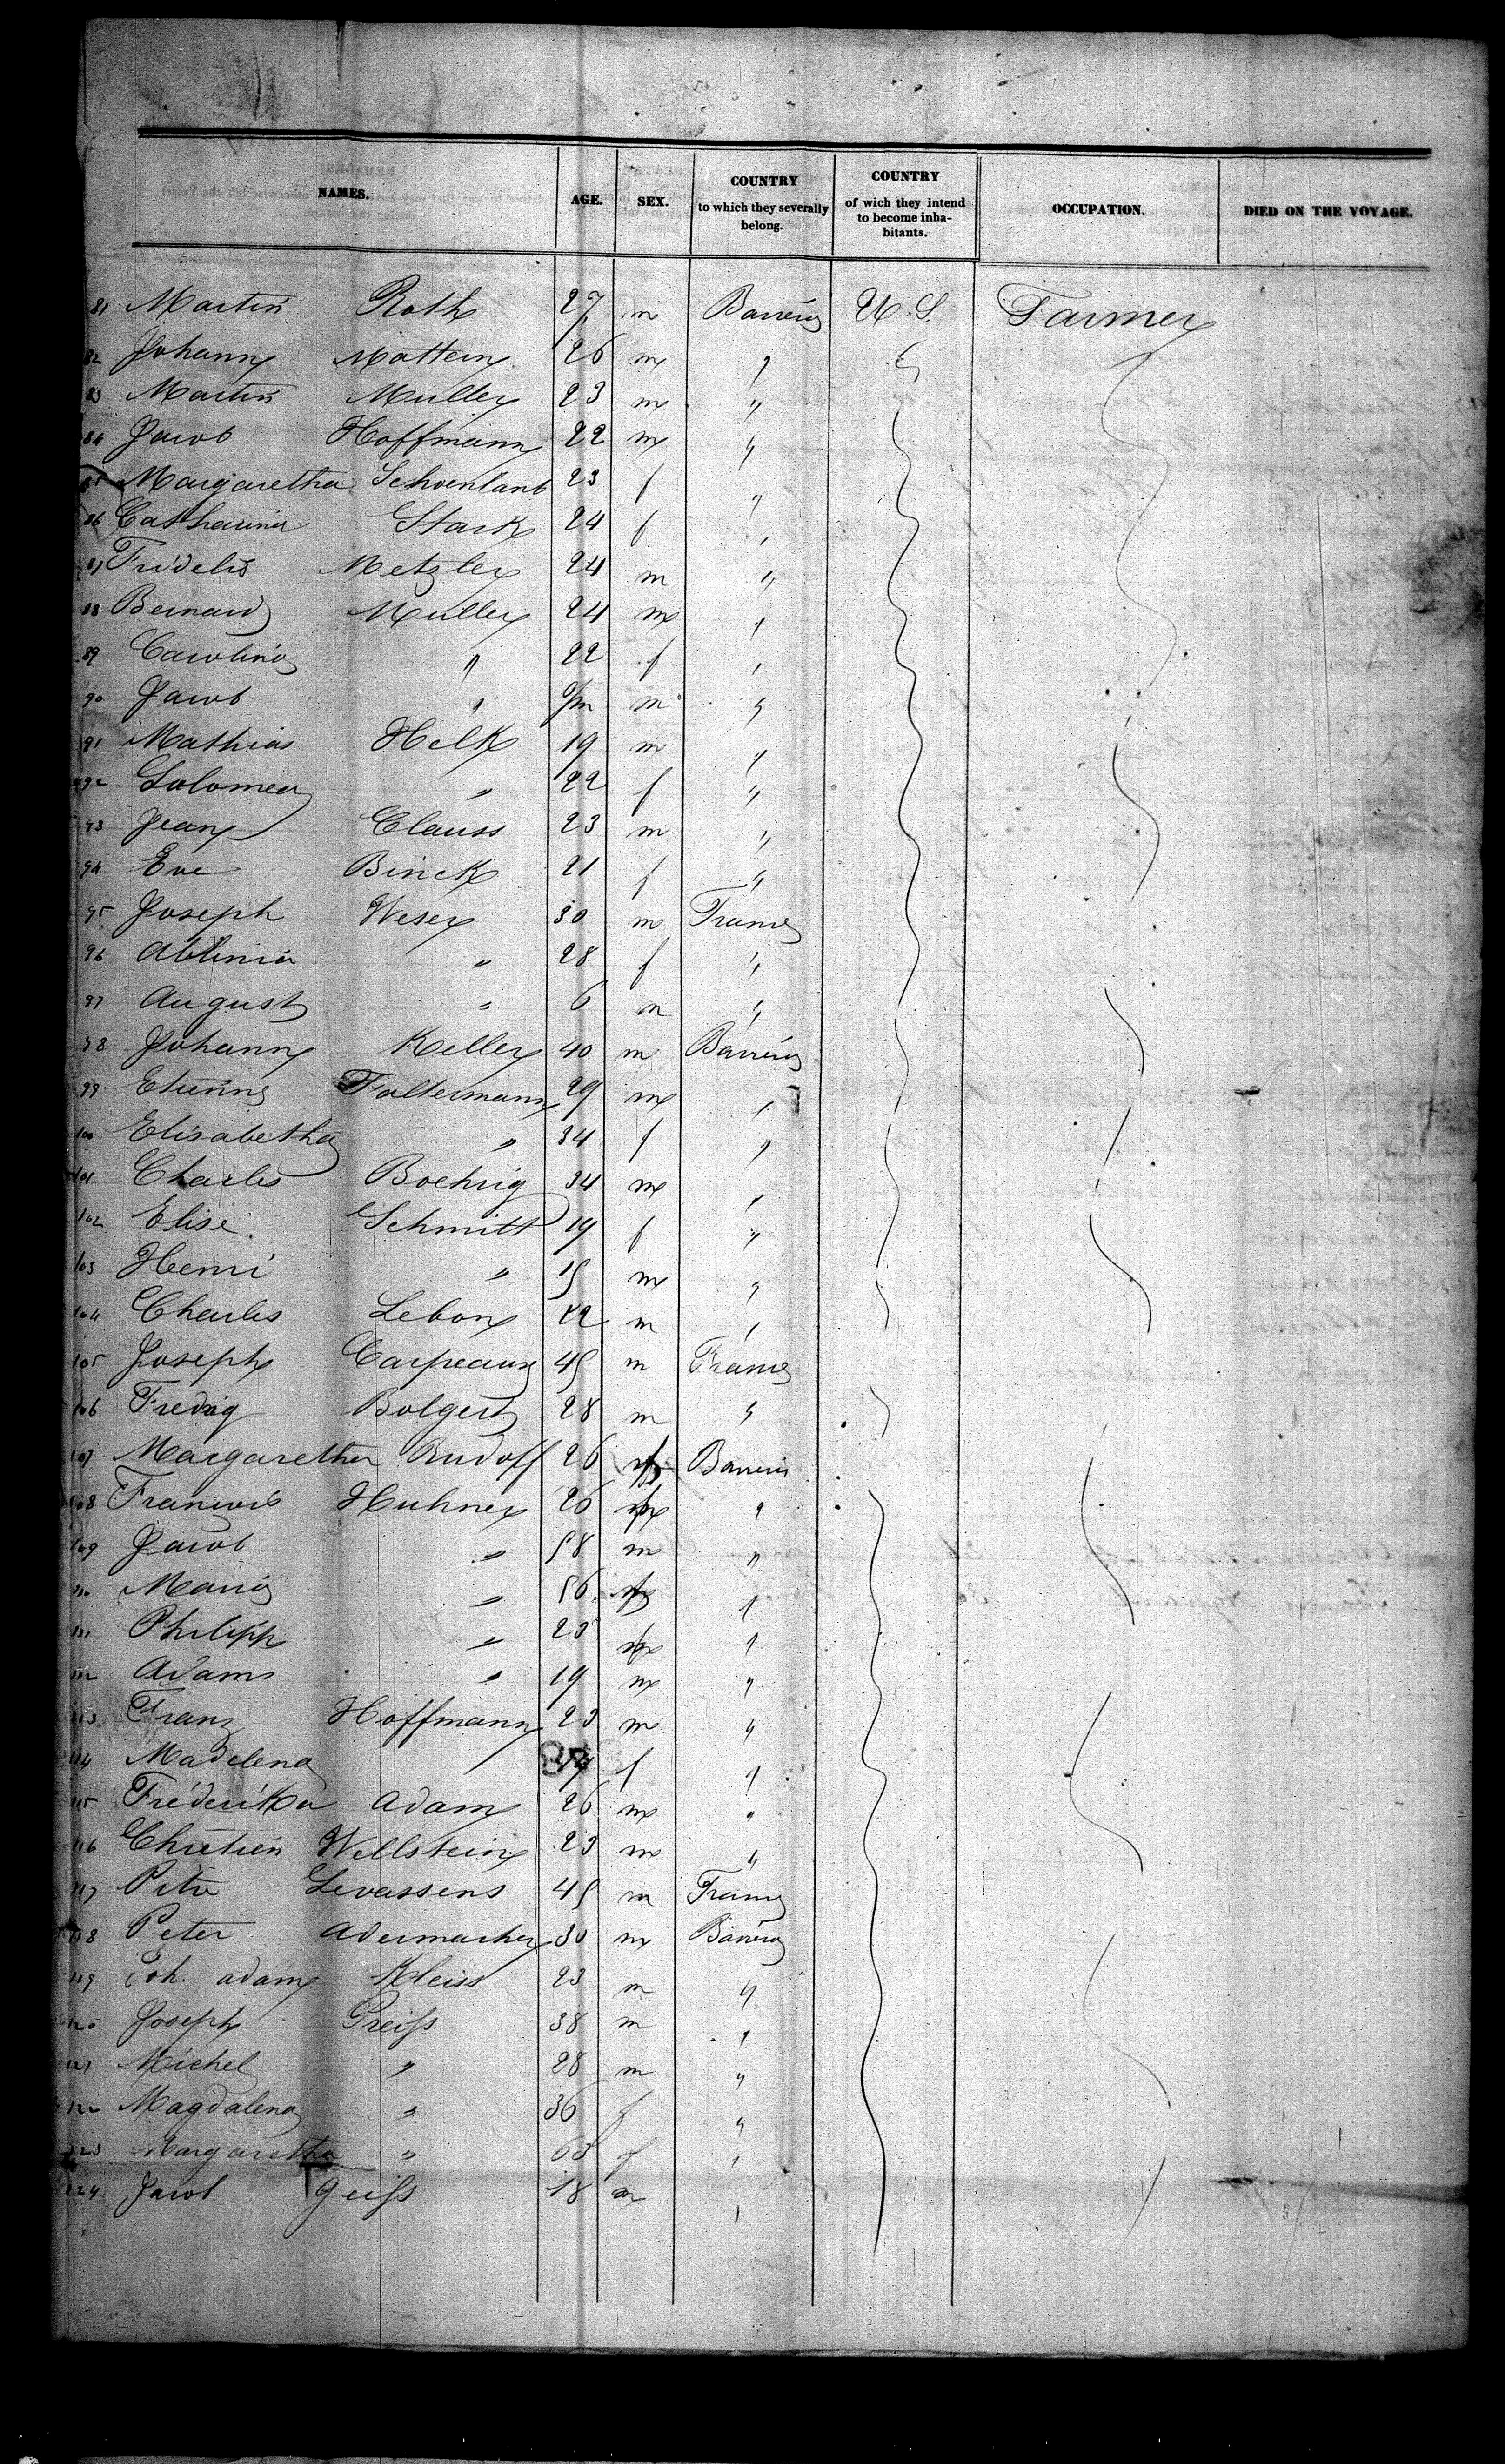 NAMES. AGE. SEX. COUNTRY to which they severally belong. COUNTRY of wich they intend to become inhabitants. OCCUPATION. DIED ON THE VOYAGE.
81 Martin Roth 27 m Bavieria U.S. Farmer
82 Johann Mattern 26 m "
83 Martin Muller 23 m "
84 Jacob Hoffmann 22 m "
85 Margaretha Schoenlaub 23 f "
86 Catharina Stark 24 f "
87 Fridelis Metzler 24 m "
88 Bernard Muller 24 m "
89 Carolina " 22 f "
90 Jacob " 9/m m "
91 Mathias Helk 19 m "
92 Solomea " 22 f "
93 Jean Clauss 23 m "
94 Eve Binck 21 f "
95 Joseph Weser 30 m France
96 " 28 f "
97 August " 6 m "
98 Johann Keller 40 m Bavieria
99 Etienne Faltermann 29 m "
100 Elisabetha " 34 f "
101 Charles Boehrig 34 m "
102 Elise Schmitt 19 f "
103 Henri " 15 m "
104 Charles Lebon m "
105 Joseph Carpeaux 45 m France
106 Bolgert 28 m "
107 Margaretha Rudoff 26 f Bavieria
108 Francois Huhner 26 m "
109 Jacob " 58 m "
110 Maria " 56 f "
111 Philipp " 25 m "
112 Adam " 19 m "
113 Franz Hoffmann 23 m "
114 Madelena f "
115 Frederika Adam 26 m "
116 Chretien Wellstein 23 m "
117 Levassens 45 m France
118 Peter Adermacher 30 m Bavieria
119 Joh. Adam Kleiss 23 m "
120 Joseph Preiss 38 m "
121 Michel " 28 m "
122 Magdalena " 36 f "
123 Margaretha " 63 f "
124 Jacob Geiss 18 m "